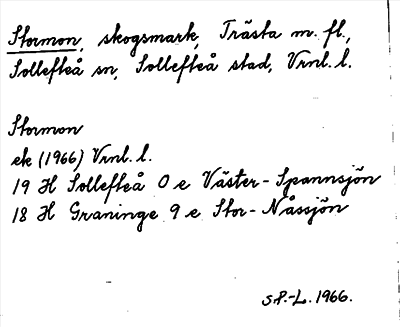 Stormon, skogsmark, Trästa m. fl.,
Sollefteå sn, Sollefteå stad, Vrnl. l.
Stormon
ek (1966) Vrnl. l.
19 H Sollefteå 0 e Väster-Spannsjön
18 H Graninge 9 e Stor-Nåssjön
S.P.-L. 1966.